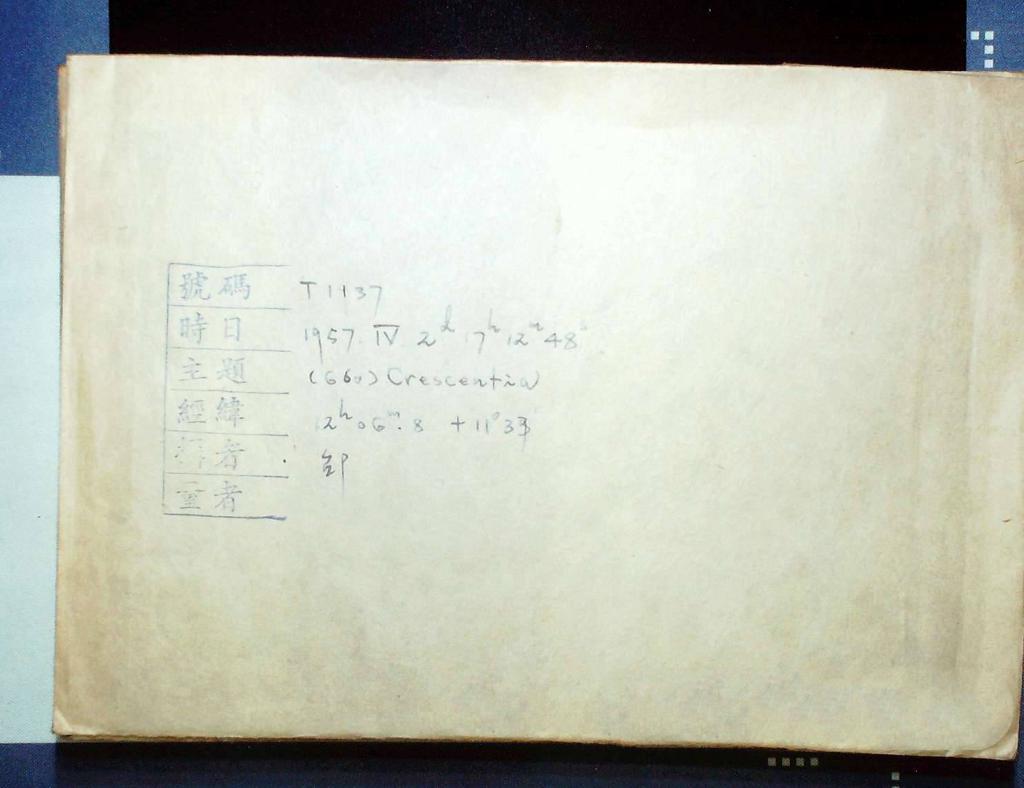 號碼 T1137
時日 1957. IV. 2ᵈ 17ʰ 12ᵐ 48ˢ
主題 (660) Crescentia
經緯 12ʰ 06ᵐ.8 +11°33'
者
者